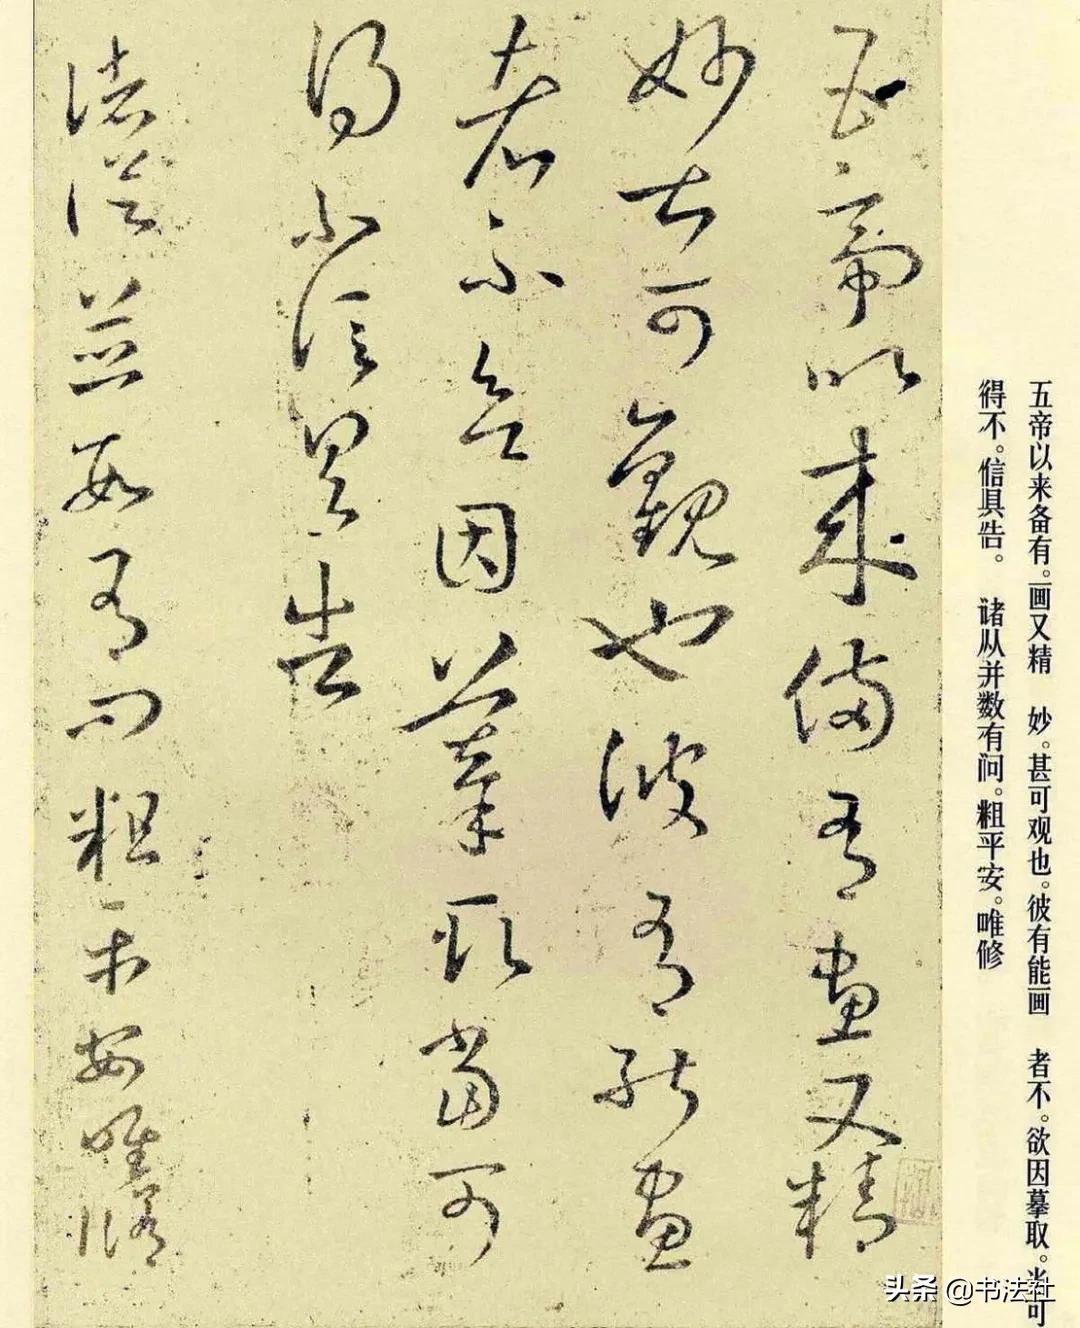 五帝以来备有。画又精　妙。甚可观也。彼有能画　者不。欲因摹取。当可
得不。信具告。　诸从并数有问。粗平安。唯修
五帝以來備有畫又精
妙甚可觀也彼有能畫
者不欲因摹取當可
得不信具告
諸從並數有問粗平安唯脩
头条 @书法社